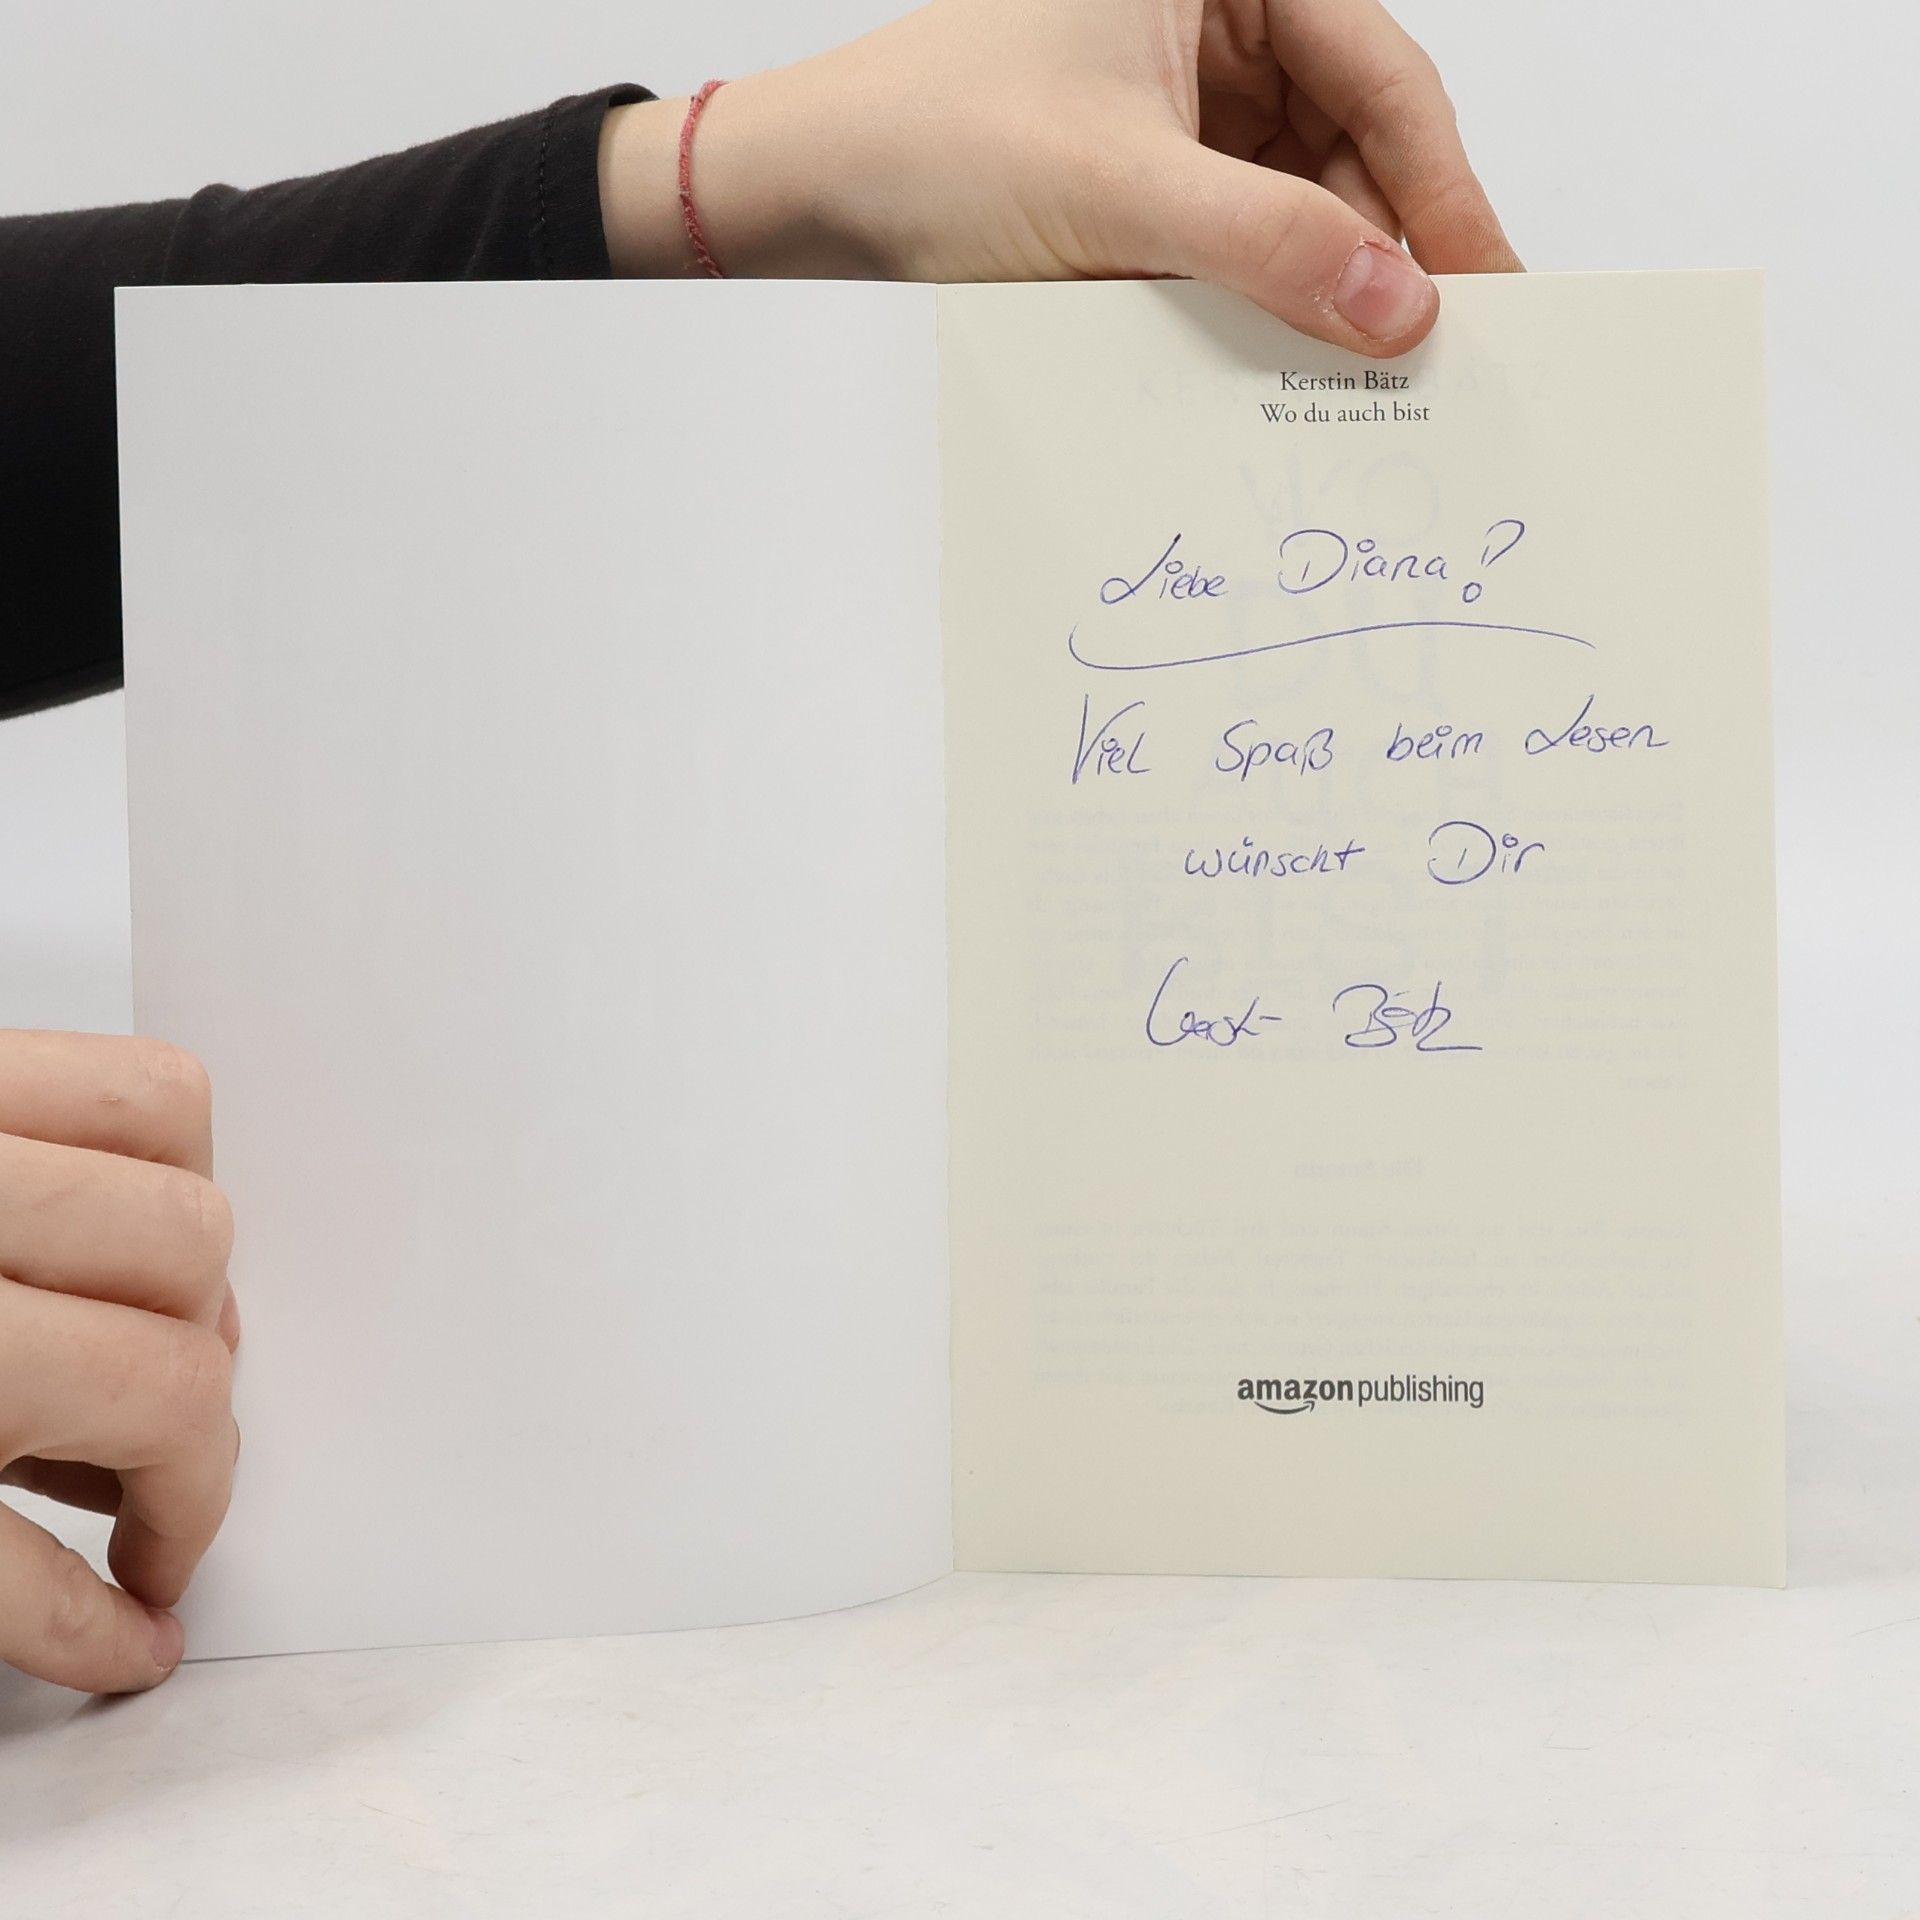 Kerstin Bätz
Wo du auch bist
Liebe Diana!
Viel Spaß beim Lesen
wünscht Dir
Kerstin Bätz
amazonpublishing